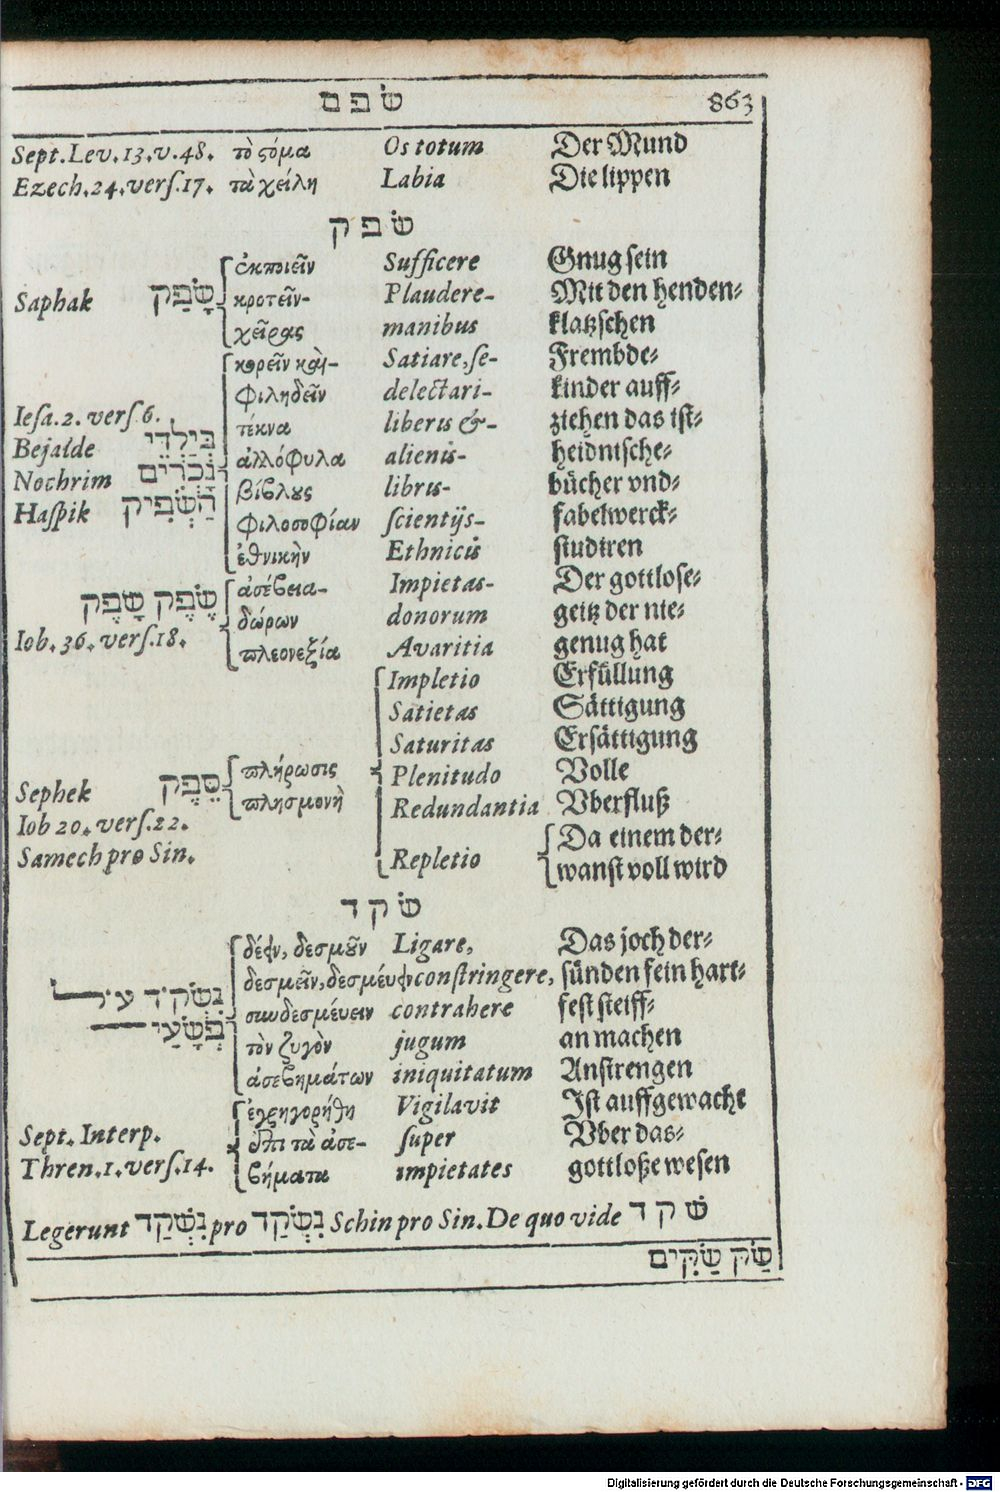 שׂ פ ם 863
Sept. Lev. 13. v. 48. τὸ ςόμα Os totum Der Mund
Ezech. 24. vers. 17. τὰ χείλη Labia Die lippen
שׂ פ ק
ἐκποιεῖν Sufficere Gnug sein
Saphak שָׂפַק κροτεῖν- Plaudere- Mit den henden-
χεῖρας manibus klatzschen
κορεῖν καὶ- Satiare, se- Frembde-
φιληδεῖν delectari- kinder auff-
Iesa. 2. vers 6. τέκνα liberis &- ziehen das ist-
Bejalde בְּיַלְדֵי ἀλλόφυλα alienis- heidnische-
Nochrim נָכְרִים βίβλους libris- bücher vnd-
Haspik הַשְׂפִּיק φιλοσοφίαν scientijs- fabelwerck-
ἐθνικὴν Ethnicis studiren
שֶׂפֶק שָׂפֶק ἀσέβεια- Impietas- Der gottlose-
δώρων donorum geitz der nie-
Iob. 36. vers. 18. πλεονεξία Avaritia genug hat
Impletio Erfüllung
Satietas Sättigung
Saturitas Ersättigung
Sephek סֵפֶק πλήρωσις Plenitudo Volle
πλησμονὴ Redundantia Vberfluß
Iob 20. vers. 22. Da einem der-
Samech pro Sin. Repletio wanst voll wird
שׂ ק ד
δέειν, δεσμοῦν Ligare, Das joch der-
δεσμεῖν, δεσμέυειν constringere, sünden fein hart-
נִשְׂקַד עֹל συνδεσμέυειν contrahere fest steiff-
פְּשָׁעַי τὸν ζυγὸν jugum an machen
ἀσεβημάτων iniquitatum Anstrengen
ἐγρηγορήθη Vigilavit Ist auffgewacht
Sept. Interp. ἐπὶ τὰ ἀσε- super Vber das-
Thren. 1. vers. 14. βήματα impietates gottloße wesen
Legerunt נִשְׁקַד pro נִשְׂקַד Schin pro Sin. De quo vide שׁ ק ד
שַׂק שַׂקִּים
Digitalisierung gefördert durch die Deutsche Forschungsgemeinschaft - DFG